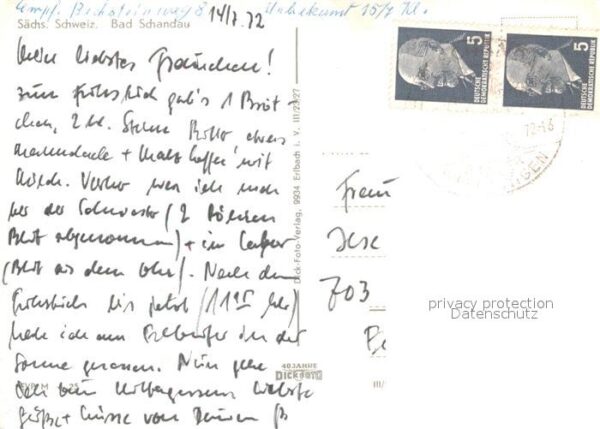 Empf. Bechsteinweg 8 Unbekannt 15/7 Kl.
Sächs. Schweiz. Bad Schandau
14/7.72
Mein liebstes Frauchen!
zum Frühstück gab's 1 Bröt-
chen, 2 kl. Stückn Butter etwas
Marmelade + Malzkaffee mit
Milch. Vorher war ich noch
bei der Schwester (2 Röhrchen
Blut abgenommen) + im Labor
(Blut aus dem Ohr). Nach dem
Frühstück bis jetzt (11 15 Uhr)
habe ich am Elbeufer in der
Sonne gesessen. Nun gehe
ich zum Mittagessen. Liebste
Grüße + Küsse von Deinem
Frau
703
privacy protection
Datenschutz
Dick-Foto-Verlag, 9934 Erlbach i. V. III/23/27
40 JAHRE
DICK FOTO
III/
5
DEUTSCHE
DEMOKRATISCHE REPUBLIK
5
DEUTSCHE
DEMOKRATISCHE REPUBLIK